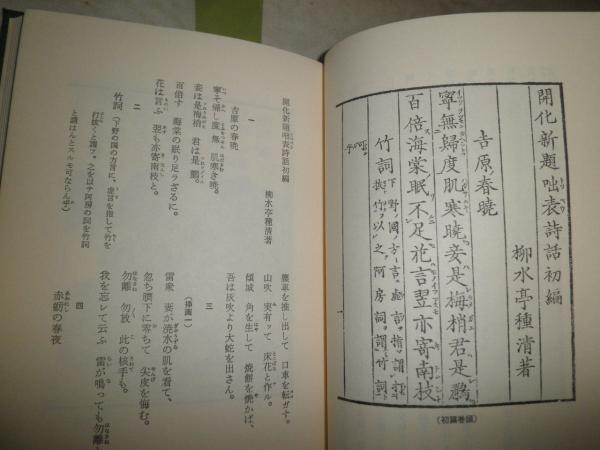 開化新題咄表詩話初編
柳水亭種清著
吉原ノ春曉
寧無歸度肌寒曉妾是梅梢君是鸎
百倍海棠眠不足花言翌亦寄南枝
竹詞
(初篇巻頭)
開化新題咄表詩話初編
柳水亭種清著
一
吉原の春暁
寧ろ帰し度無 肌寒き暁。
妾は是梅梢 君は是 鸎。
百倍す 海棠の眠り足ラざるに。
花は言ふ 翌も亦寄南枝と。
二
竹詞 (下野の国の方言に、虚言を指して竹を
打抜くと謂フ。之を以テ阿房の詞を竹詞
と謂はんとスルモ可ならんや)
腰車を推し出して 口車を転ガす。
山吹 実有ッて 床花と作ル。
傾城 角を生して 焼餅を焼かば、
吾は灰吹より大蛇を出さん。
三
(挿画一)
雷衆 妻が浇水の肌を看て、
忽ち臍下に零ちて 尖皮を侮む。
勿離 勿放 此の核手も。
我を忘レて云ふ 雷が鳴っても勿離
四
赤嶺の春夜